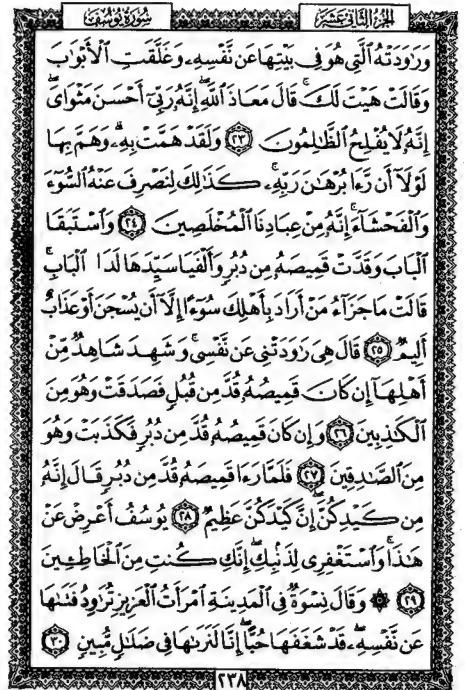 الجزء الثاني عشر
سورة يوسف
وَرَٰوَدَتْهُ ٱلَّتِى هُوَ فِى بَيْتِهَا عَن نَّفْسِهِۦ وَغَلَّقَتِ ٱلْأَبْوَٰبَ
وَقَالَتْ هَيْتَ لَكَ ۚ قَالَ مَعَاذَ ٱللَّهِ ۖ إِنَّهُۥ رَبِّىٓ أَحْسَنَ مَثْوَاىَ ۖ
إِنَّهُۥ لَا يُفْلِحُ ٱلظَّٰلِمُونَ ٢٣ وَلَقَدْ هَمَّتْ بِهِۦ ۖ وَهَمَّ بِهَا
لَوْلَآ أَن رَّءَا بُرْهَٰنَ رَبِّهِۦ ۚ كَذَٰلِكَ لِنَصْرِفَ عَنْهُ ٱلسُّوٓءَ
وَٱلْفَحْشَآءَ ۚ إِنَّهُۥ مِنْ عِبَادِنَا ٱلْمُخْلَصِينَ ٢٤ وَٱسْتَبَقَا
ٱلْبَابَ وَقَدَّتْ قَمِيصَهُۥ مِن دُبُرٍ وَأَلْفَيَا سَيِّدَهَا لَدَا ٱلْبَابِ ۚ
قَالَتْ مَا جَزَآءُ مَنْ أَرَادَ بِأَهْلِكَ سُوٓءًا إِلَّآ أَن يُسْجَنَ أَوْ عَذَابٌ
أَلِيمٌ ٢٥ قَالَ هِىَ رَٰوَدَتْنِى عَن نَّفْسِى ۚ وَشَهِدَ شَاهِدٌ مِّنْ
أَهْلِهَآ إِن كَانَ قَمِيصُهُۥ قُدَّ مِن قُبُلٍ فَصَدَقَتْ وَهُوَ مِنَ
ٱلْكَٰذِبِينَ ٢٦ وَإِن كَانَ قَمِيصُهُۥ قُدَّ مِن دُبُرٍ فَكَذَبَتْ وَهُوَ
مِنَ ٱلصَّٰدِقِينَ ٢٧ فَلَمَّا رَءَا قَمِيصَهُۥ قُدَّ مِن دُبُرٍ قَالَ إِنَّهُۥ
مِن كَيْدِكُنَّ ۖ إِنَّ كَيْدَكُنَّ عَظِيمٌ ٢٨ يُوسُفُ أَعْرِضْ عَنْ
هَٰذَا ۚ وَٱسْتَغْفِرِى لِذَنۢبِكِ ۖ إِنَّكِ كُنتِ مِنَ ٱلْخَاطِـِٔينَ
٢٩ ۞ وَقَالَ نِسْوَةٌ فِى ٱلْمَدِينَةِ ٱمْرَأَتُ ٱلْعَزِيزِ تُرَٰوِدُ فَتَىٰهَا
عَن نَّفْسِهِۦ ۖ قَدْ شَغَفَهَا حُبًّا ۖ إِنَّا لَنَرَىٰهَا فِى ضَلَٰلٍ مُّبِينٍ ٣٠
٢٣٨